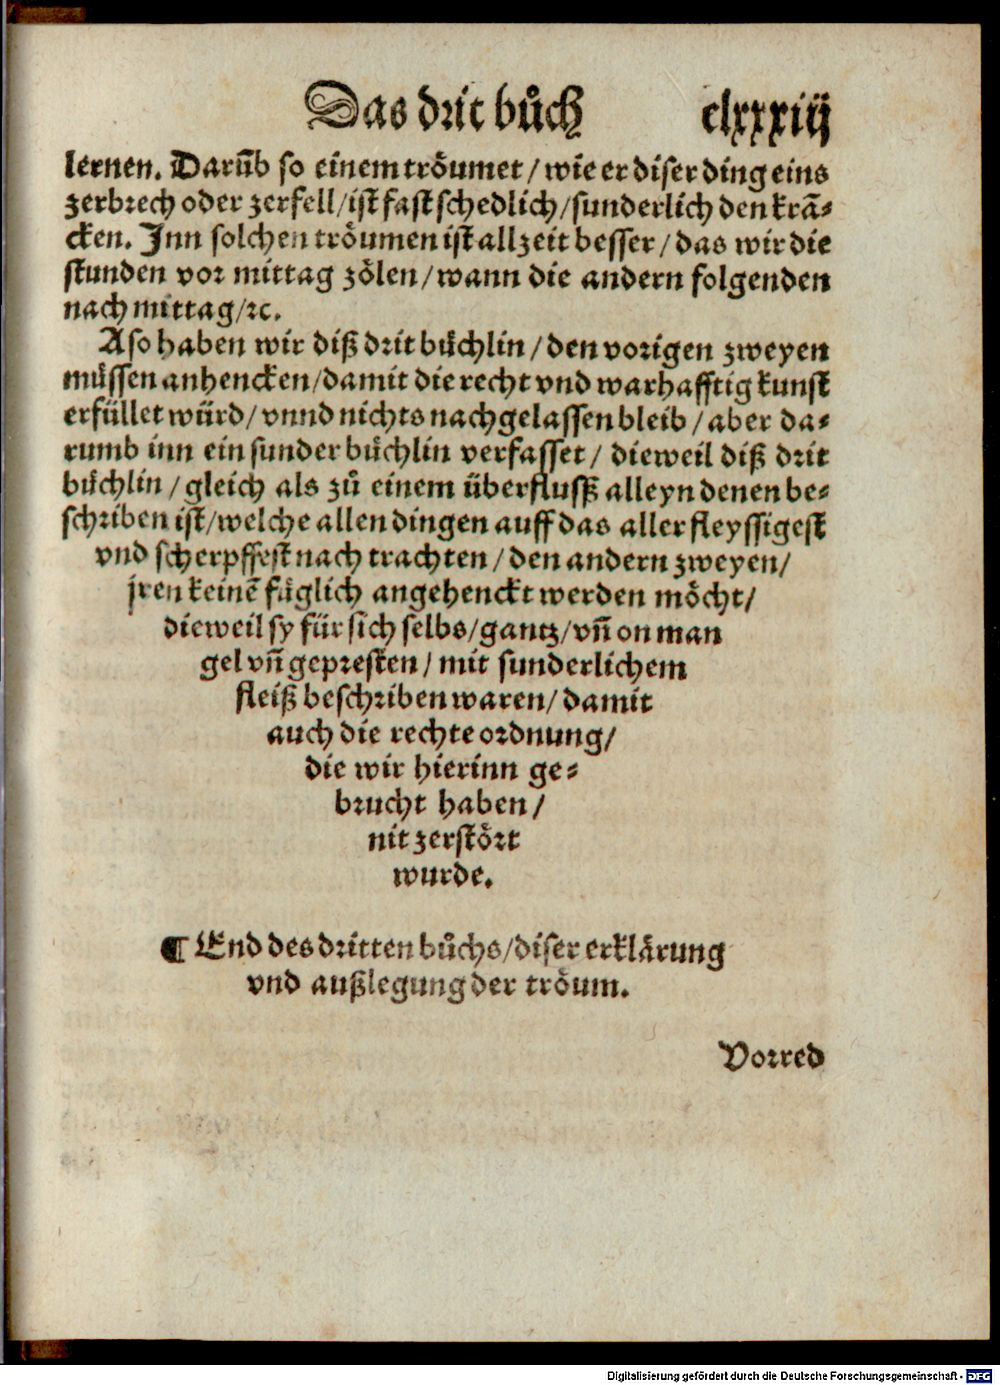 Das drit bůch clxxxiij
lernen. Darũb so einem trőumet / wie er diser ding eins
zerbrech oder zerfell / ist fast schedlich / sunderlich den krã⸗
cken. Inn solchen trőumen ist allzeit besser / das wir die
stunden vor mittag zőlen / wann die andern folgenden
nach mittag / ꝛc.
Aso haben wir diß drit bůchlin / den vorigen zweyen
můssen anhencken / damit die recht vnd warhafftig kunst
erfüllet würd / vnnd nichts nachgelassen bleib / aber da⸗
rumb inn ein sunder bůchlin verfasset / dieweil diß drit
bůchlin / gleich als zů einem überflusß alleyn denen be⸗
schriben ist / welche allen dingen auff das aller fleyssigest
vnd scherpffest nach trachten / den andern zweyen /
jren keinẽ fůglich angehenckt werden mőcht /
dieweil sy für sich selbs / gantz / vñ on man
gel vñ gepresten / mit sunderlichem
fleiß beschriben waren / damit
auch die rechte ordnung /
die wir hierinn ge⸗
brucht haben /
nit zerstőrt
wurde.
¶ End des dritten bůchs / diser erklärung
vnd außlegung der trőum.
Vorred
Digitalisierung gefördert durch die Deutsche Forschungsgemeinschaft - DFG